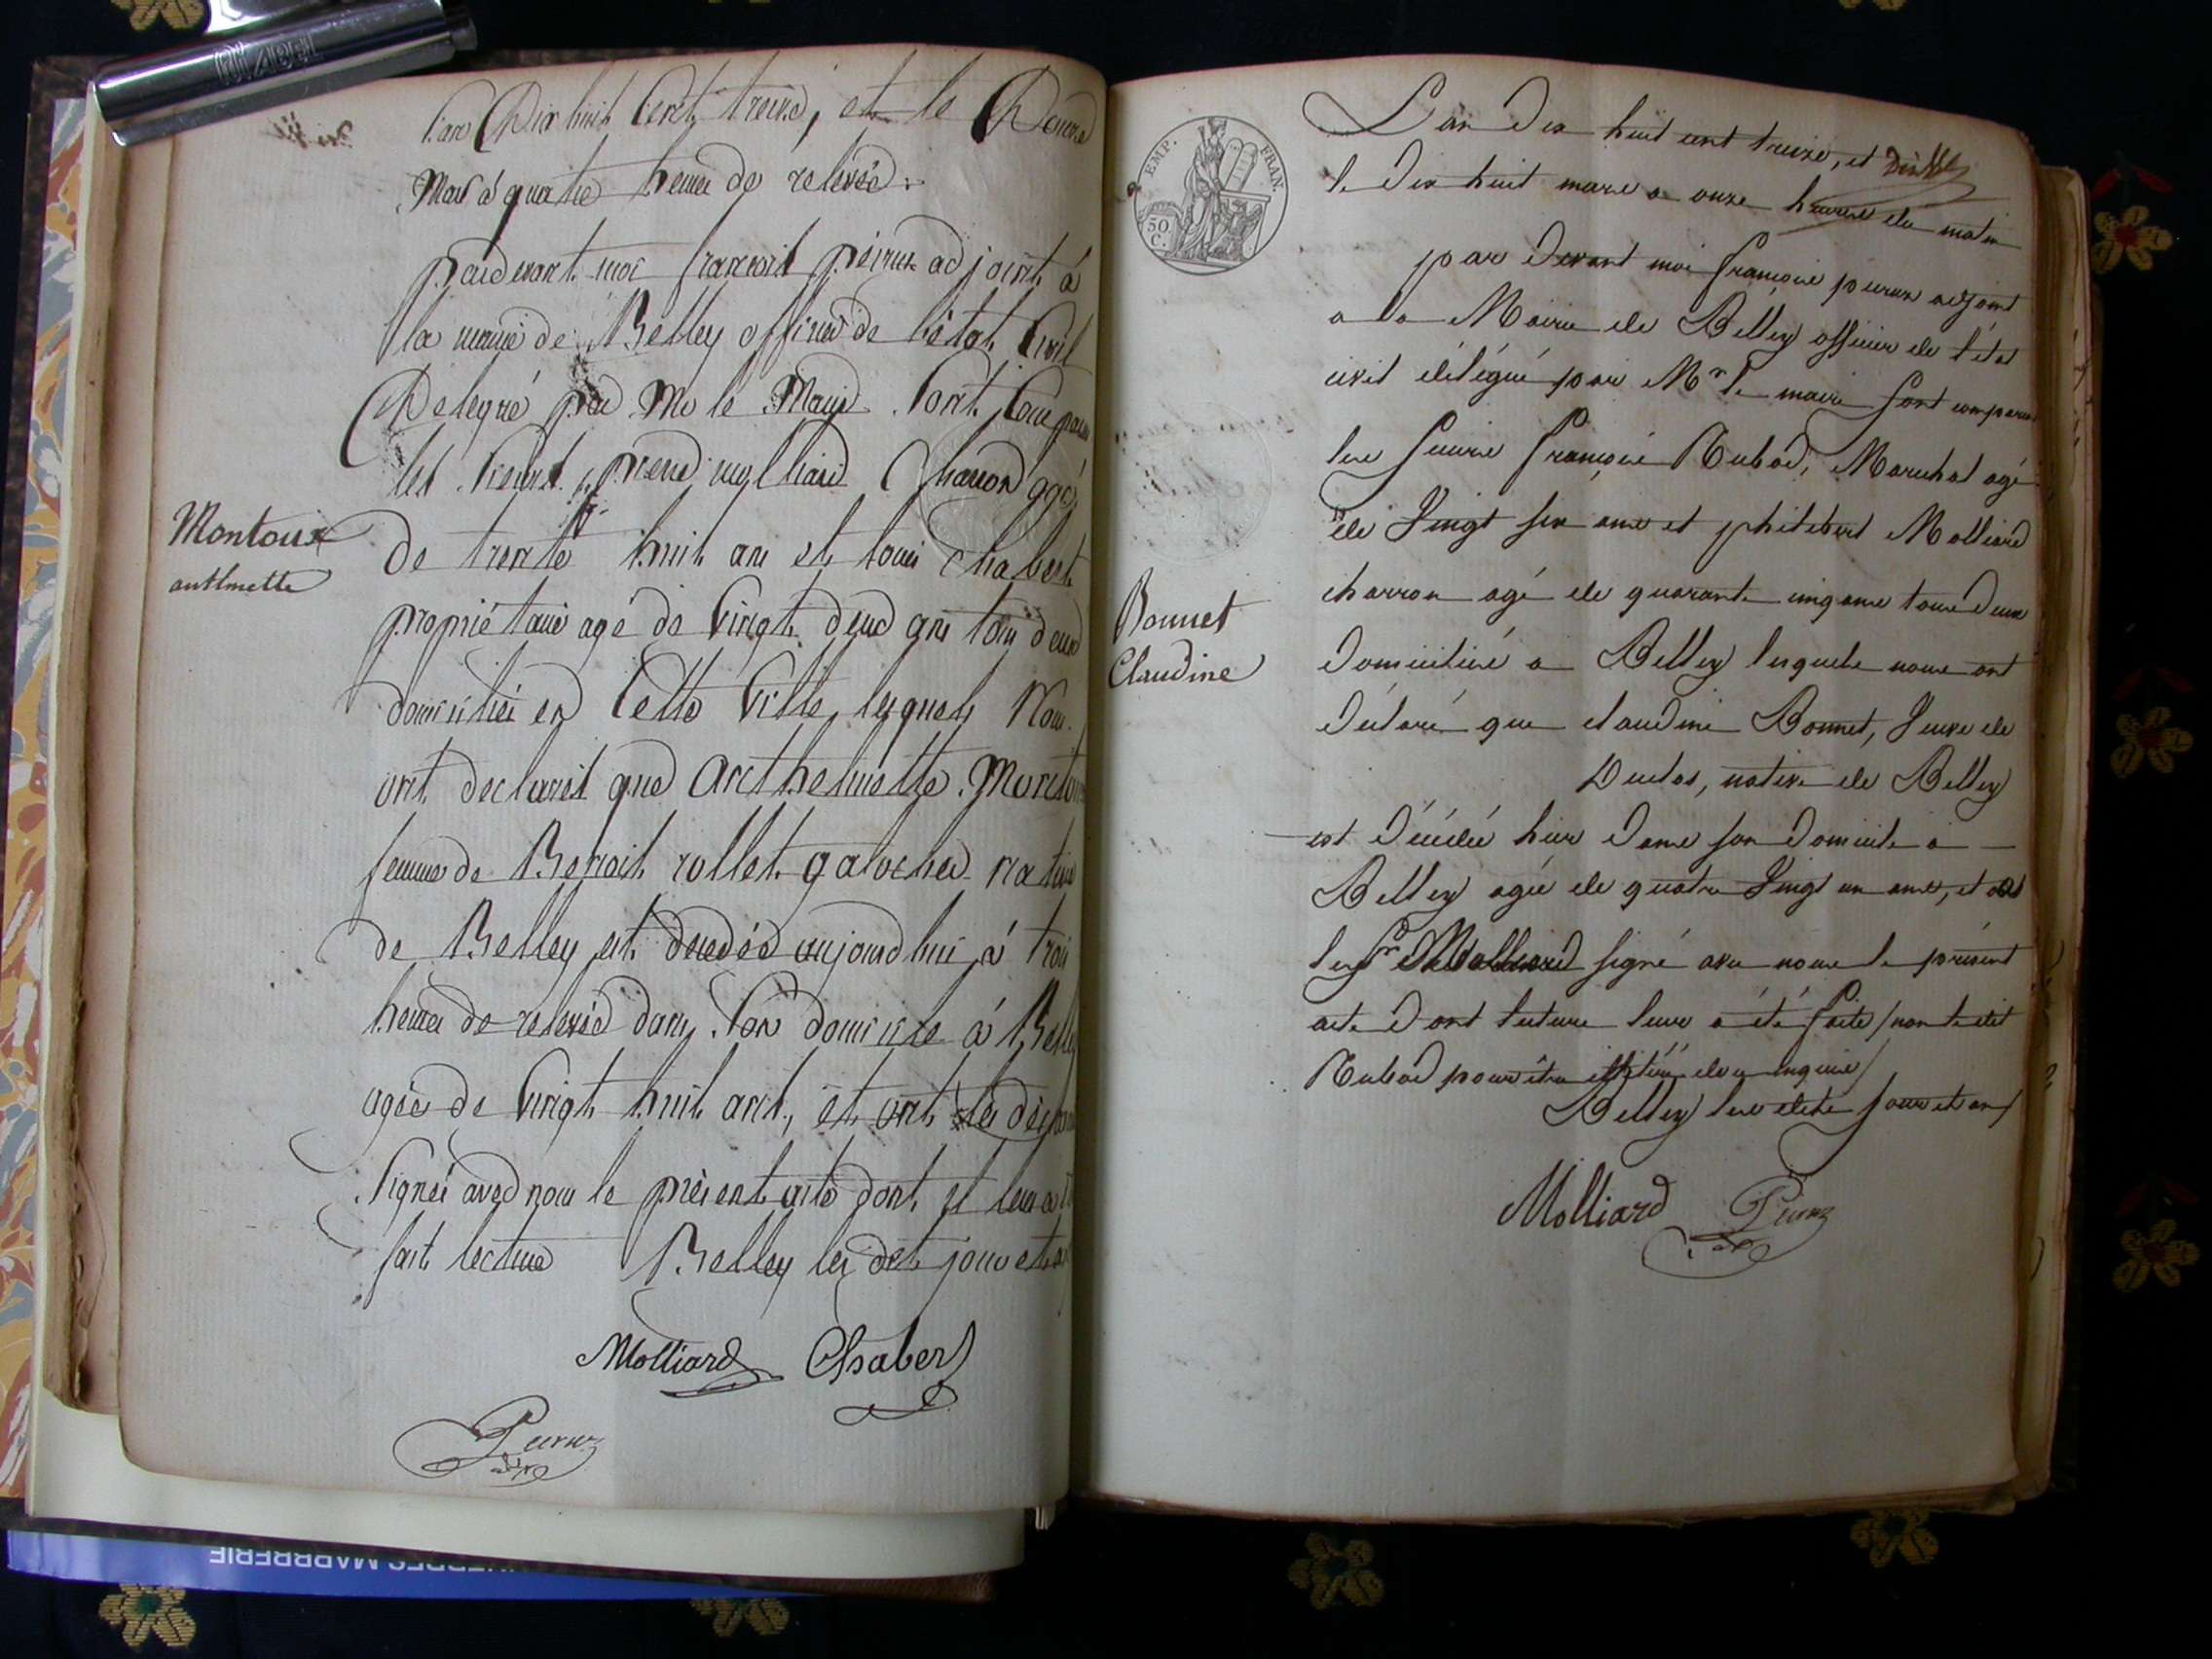 L'an Dix huit Cent treize, et le Douze
Mars à quatre heures de relevée
pardevant moi francois peirux adjoint à
la mairie de Belley officier de l'état Civil
Délégué par Mr le Maire Sont Comparu
les sieurs pierre molliard Charron agé
de trente huit ans et louis Chabert
propriétaire agé de Vingt deux ans tous deux
domiciliés en Cette Ville lesquels Nous
ont declarés que Anthelmette Montoux
femme de Benoit rollet galocher native
de Belley est decedée aujourd'hui à trois
heures de relevée dans Son domicile à Belley
agée de Vingt huit ans, et ont les
Signés avec nous le présent acte dont il leur a été
fait lecture Belley les dits jour et an
Molliard Chabert
Montoux
anthmette
EMP. FRAN.
50 C.
L'an dix huit cent treize, et
le dix huit mars a onze heures du matin
par devant moi françois peirux adjoint
a la Mairie de Belley officier de l'état
civil délégué par Mr le maire sont comparu
les sieurs françois Rubod, Marechal agé
de Vingt six ans et philibert Molliard
charron agé de quarante cinq ans tous deux
domiciliés a Belley lesquels nous ont
déclaré que claudine Bonnet, Veuve de
Duclos, native de Belley
est décédée hier dans son domicile a
Belley agée de quatre Vingt un ans, et
le Sr Molliard signé avec nous le présent
acte dont lecture leur a été faite / non le dit
Rubod pour être illitéré de ce enquis /
Belley les dits jour et an
Molliard
Bonnet
Claudine